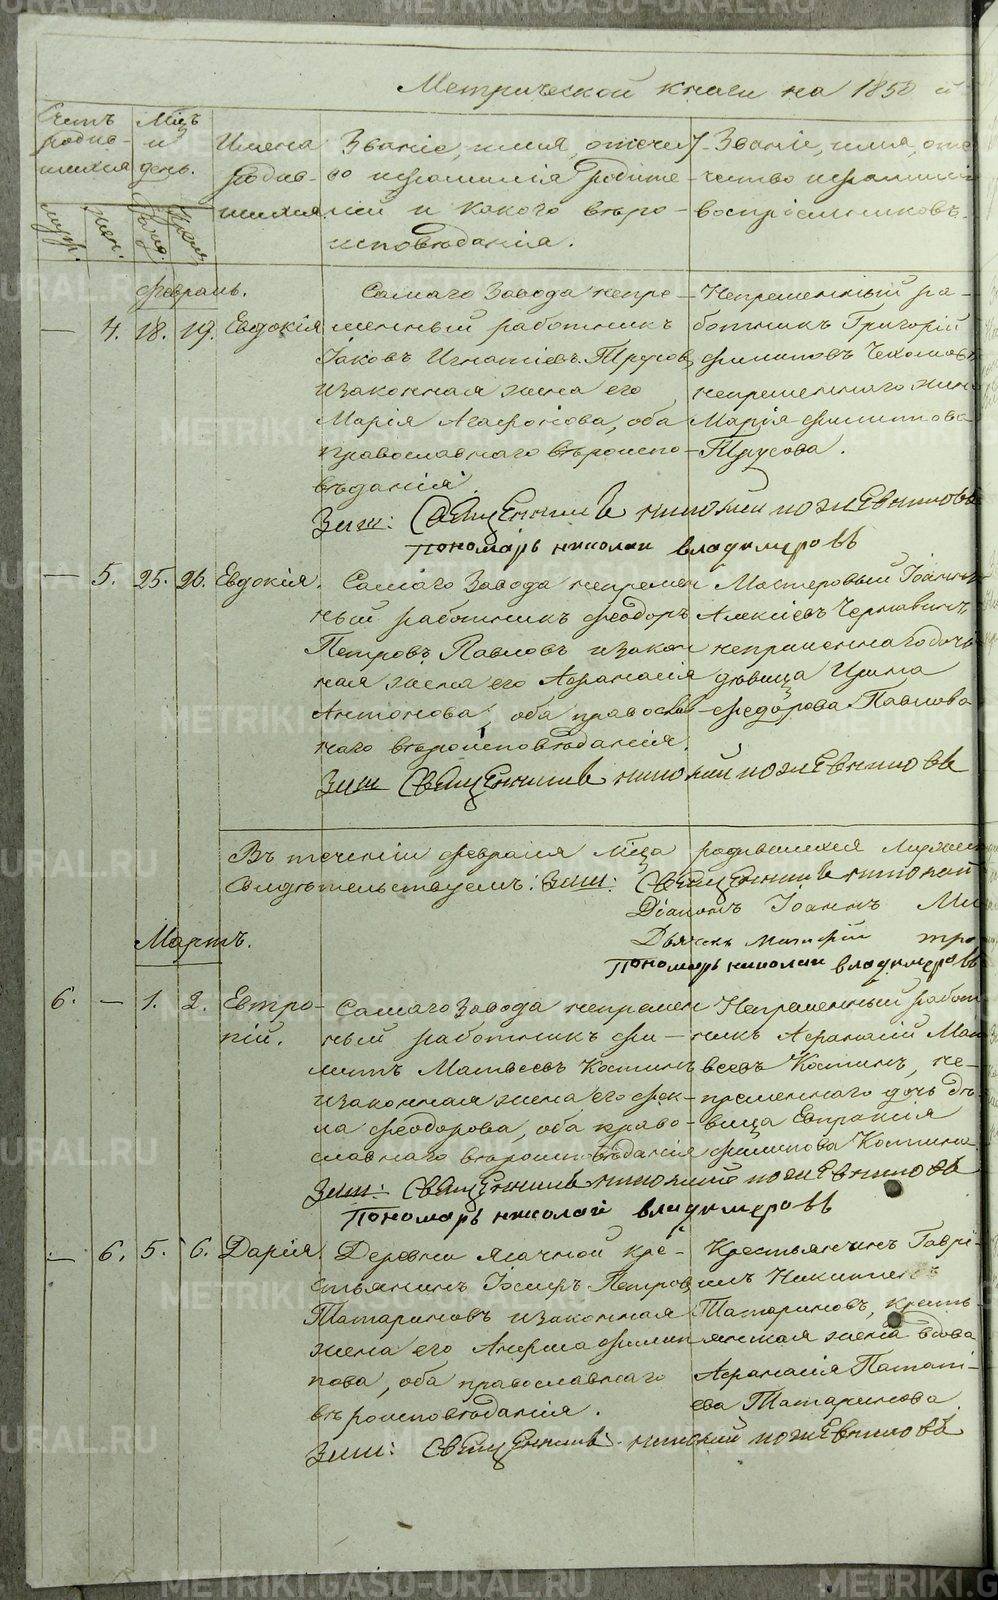 Метрической книги на 1850 й
Счетъ родив- шихся
муж. жен.
Мцъ и день.
рожд. крещ.
Имена родив- шихся
Званіе, имя, отечест-
во и фамилія родите-
лей и какого вѣро-
исповѣданія.
Званіе, имя, оте-
чество и фамилія
воспріемниковъ.
Февраль.
— 4. 18. 19. Евдокія
Самаго Завода непре-
менный работникъ
Іаковъ Игнатіевъ Трусов
и законная жена его
Марія Агафонова, оба
православнаго вѣроиспо-
вѣданія.
Непременный ра-
ботникъ Григорій
Филиповъ
непременнаго жена
Марія Филиппова
Трусова.
Священникъ Николай
Пономарь Николай Владимеровъ
— 5. 25. 26. Евдокія.
Самаго Завода непремен
ный работникъ Феодоръ
Петровъ Павловъ и закон
ная жена его Афанасія
Антонова, оба православ-
наго вѣроисповѣданія.
Мастеровый Іоаннъ
Алексіевъ
непременнаго дочь
дѣвица Ирина
Федорова Павлова
Священникъ Николай
Въ теченіи Февраля мѣца родившихся
Свидѣтельствуемъ: Священникъ Николай
Діаконъ Іоаннъ
Дьячекъ
Пономарь Николай Владимеровъ
Мартъ.
6. — 1. 2. Евтро-
пій.
Самаго Завода непремен
ный работникъ Фи-
липъ Матвеевъ Костинъ
и законная жена его Фек-
ла Феодорова, оба право-
славнаго вѣроисповѣданія
Непременный работ
никъ Афанасій Мат
веевъ Костинъ, не-
пременнаго дочь дѣ-
вица Евпраксія
Филипова Костина
Священникъ Николай
Пономарь Николай Владимеровъ
— 6. 5. 6. Дарія.
Деревни Ясачной кре-
стьянинъ Іосифъ Петров
Татариновъ и законная
жена его Анфиса Филип
пова, оба православнаго
вѣроисповѣданія.
Крестьянинъ Гаврі-
илъ Никитинъ
Татариновъ, кресть
янская жена вдова
Афанасія Потапі-
ева Татаринова
Священникъ Николай
METRIKI.GASO-URAL.RU